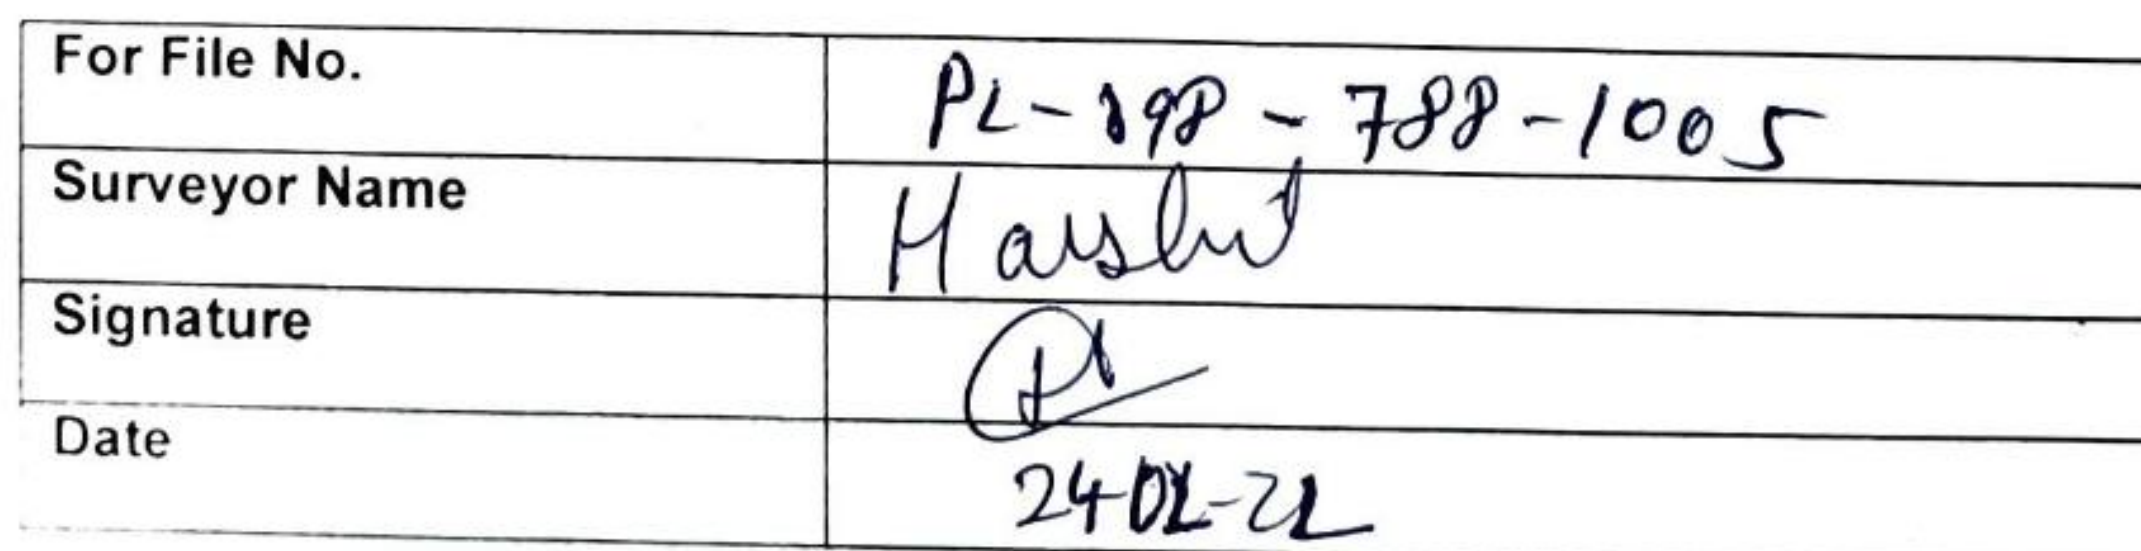 For File No. PL-198-788-1005
Surveyor Name Harshit
Signature
Date 24-02-22